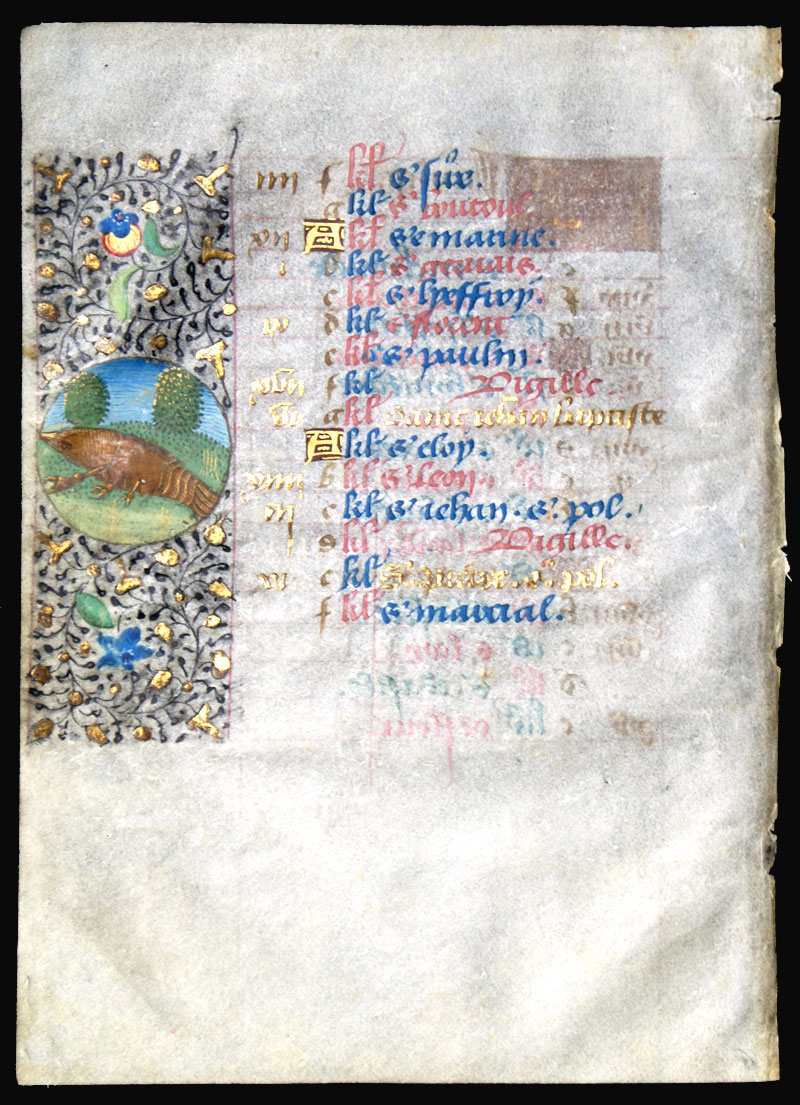 f kl s'
g kl s'
A kl s'e marine.
i b kl s' geruais.
c kl s' lyeffroy.
d kl s' florent
e kl s' paulin.
xvii f kl Vigille.
vi g kl saint iehan baptiste
A kl s' eloy.
xiiii b kl s' leon.
iii c kl s' iehan. s' pol.
kl Vigille.
xi e kl s' pierre. s' pol.
f kl s' marcial.